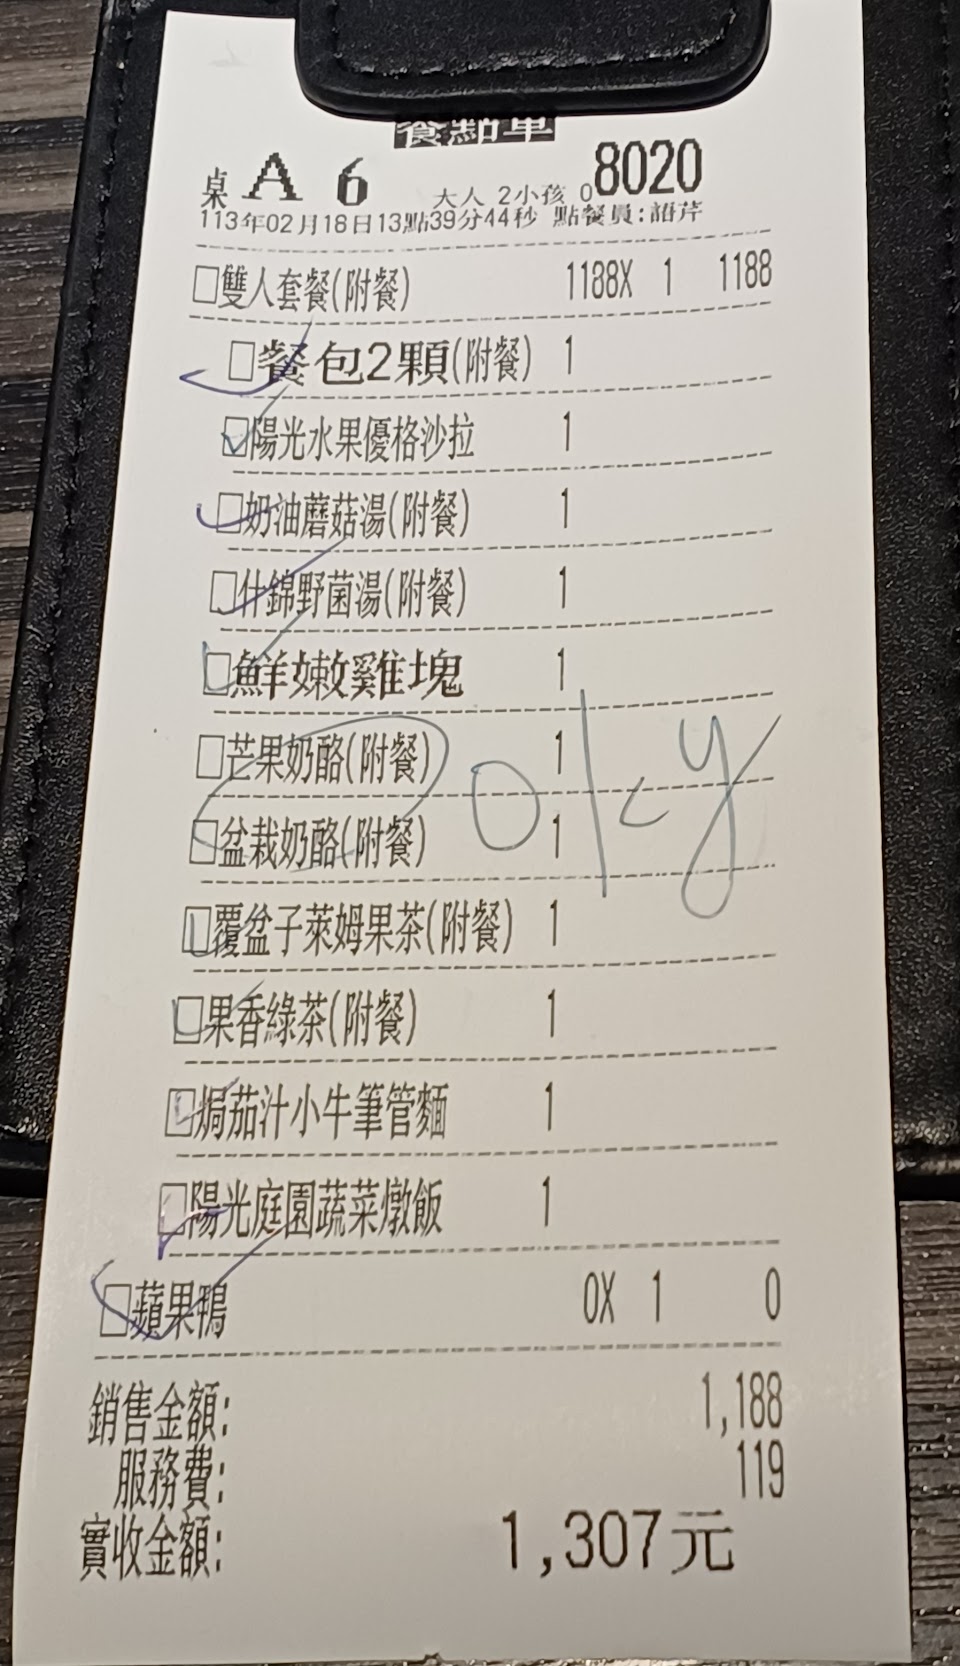 餐點單
桌 A 6 大人 2小孩 0 8020
113年02月18日13點39分44秒 點餐員:語芹
□雙人套餐(附餐) 1188X 1 1188
□餐包2顆(附餐) 1
□陽光水果優格沙拉 1
□奶油蘑菇湯(附餐) 1
□什錦野菌湯(附餐) 1
□鮮嫩雞塊 1
□芒果奶酪(附餐) 1
□盆栽奶酪(附餐) 1
oky
□覆盆子萊姆果茶(附餐) 1
□果香綠茶(附餐) 1
□焗茄汁小牛筆管麵 1
□陽光庭園蔬菜燉飯 1
□蘋果鴨 0X 1 0
銷售金額: 1,188
服務費: 119
實收金額: 1,307元